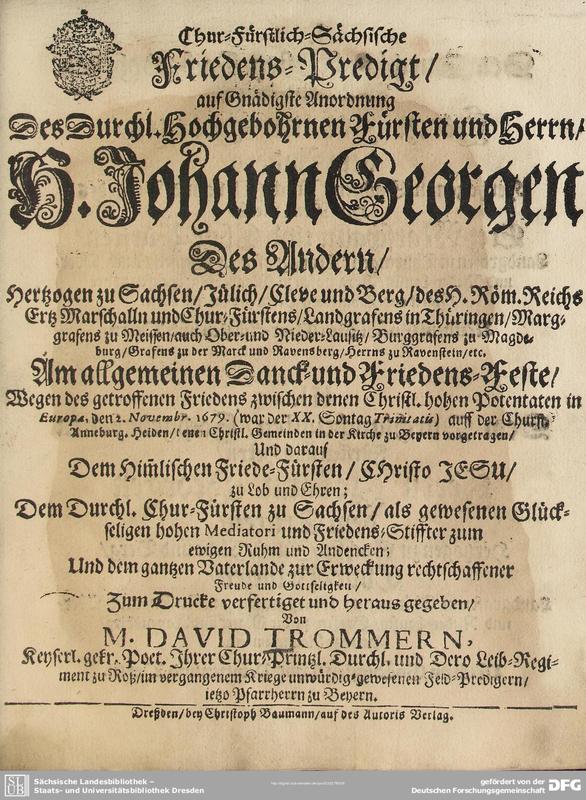 Chur-Fürstlich-Sächsische
Friedens-Predigt/
auf Gnädigste Anordnung
Des Durchl. Hochgebohrnen Fürsten und Herrn/
H. Johann Georgen
Des Andern/
Hertzogen zu Sachsen/ Jülich/ Cleve und Berg/ des H. Röm. Reichs
Ertz Marschalln und Chur-Fürstens/ Landgrafens in Thüringen/ Marg-
grafens zu Meissen/ auch Ober- und Nieder-Lausitz/ Burggrafens zu Magde-
burg/ Grafens zu der Marck und Ravensberg/ Herrns zu Ravenstein/ etc.
Am allgemeinen Danck- und Friedens-Feste/
Wegen des getroffenen Friedens zwischen denen Christl. hohen Potentaten in
Europa, den 2. Novembr. 1679. (war der XX. Sontag Trinitatis) auff der Churft.
Anneburg. Heiden/ denen Christl. Gemeinden in der Kirche zu Beyern vorgetragen/
Und darauf
Dem Him̃lischen Friede-Fürsten/ CHristo JESU/
zu Lob und Ehren;
Dem Durchl. Chur-Fürsten zu Sachsen/ als gewesenen Glück-
seligen hohen Mediatori und Friedens-Stiffter zum
ewigen Ruhm und Andencken;
Und dem gantzen Vaterlande zur Erweckung rechtschaffener
Freude und Gottseligkeit/
Zum Drucke verfertiget und heraus gegeben/
Von
M. DAVID TROMMERN,
Keyserl. gekr. Poet. Ihrer Chur-Printzl. Durchl. und Dero Leib-Regi-
ment zu Roß/ im vergangenem Kriege unwürdig-gewesenen Feld-Predigern/
ietzo Pfarrherrn zu Beyern.
Dreßden/ bey Christoph Baumann/ auf des Autoris Verlag.
SLUB
Sächsische Landesbibliothek –
Staats- und Universitätsbibliothek Dresden
gefördert von der
Deutschen Forschungsgemeinschaft
DFG